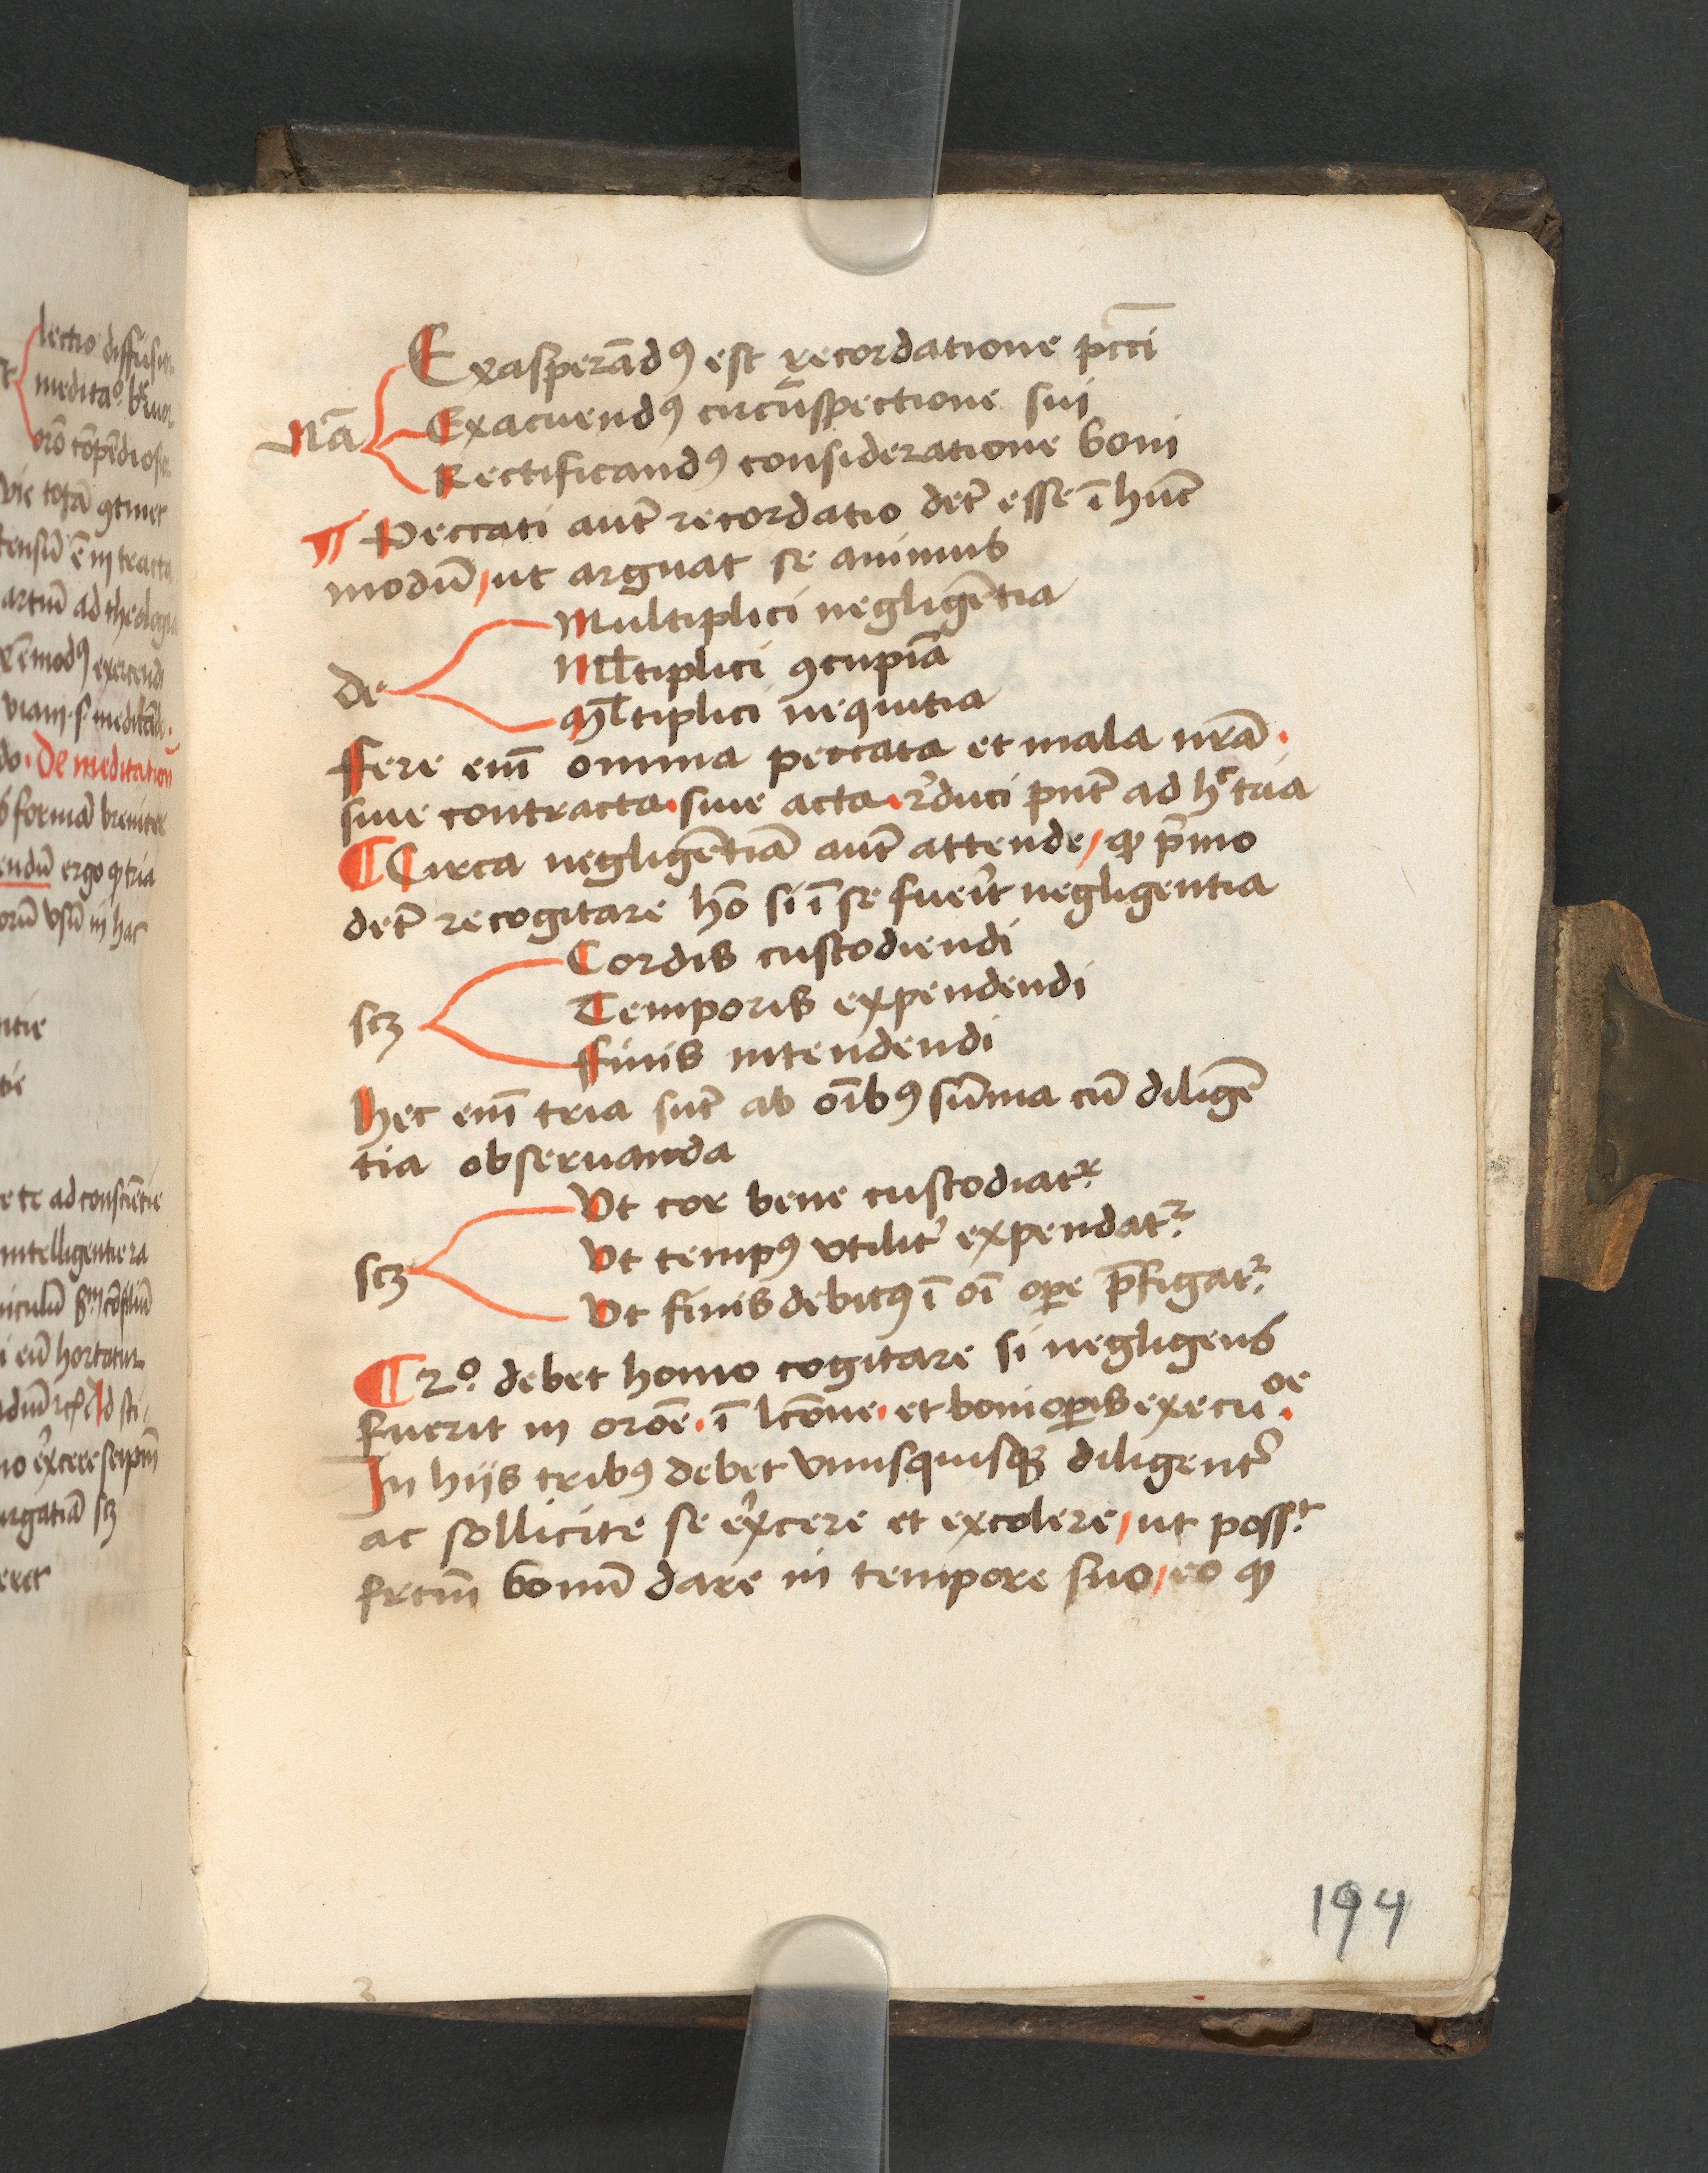 lectio diffusi
medita⁰ b
orō cōpēdiosa
vie totā ꝯtinet
tensiū ē in tracta
artiū ad theologi
modꝰ exercend
viam s meditād
do. De meditation
formā breuiter
endū ergo ꝙ tria
orū vsū in hac
ntie
tie
te ad consciētie
intelligentie ra
niculū
eū hortatur
ex̾cere seip̄m
urgatiā scꝫ
Exasperādꝰ est recordatione pcc̄i
Nā Exacuendꝰ circū̄spectione sui
Rectificandꝰ consideratione boni
¶ Peccati aut̄ recordatio det̄ esse ī hūc
modū, ut arguat se animus
Multiplici negligētia
de Ml̄tiplici ꝯcupiā
Ml̄tiplici nequitia
Fere eni̅ omnia peccata et mala nr̄a.
siue contracta. siue acta. r̾duci pn̄t ad hᶜ tria
¶ Circa negligētiā aut̄ attende, ꝙ p̄mo
det̄ recogitare hō si ī se fuer̾t negligentia
Cordis custodiendi
scꝫ Temporis expendendi
Finis intendendi
Hec eni̅ tria sūt ab oībꝰ sūma cū diligē
tia obseruanda
Vt cor bene custodiatᷣ
scꝫ Vt tempꝰ vtilit̾ expendatᷣ
Vt finis debitꝰ ī oī oꝑe p̄figatᷣ
¶ 2⁰. debet homo cogitare si negligens
fuerit in orōe. ī lcōne. et boni oꝑis execu᷒oe.
In hijs tribꝰ debet vnusquisqꝫ diligent̾
ac sollicite se ex̾cere et excolere, ut possᵗ
frctm̄ bonū dare in tempore suo, eo ꝙ
194